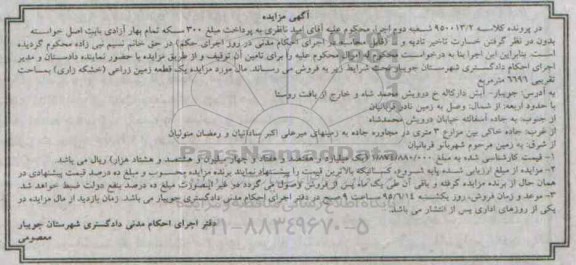 آگهی مزایده
در پرونده کلاسه ۹۵۰۰۱۳/۲ شعبه دوم اجرا، محکوم علیه آقای امید ناظری به پرداخت مبلغ ۳۰۰ سکه تمام بهار آزادی بابت اصل خواسته
بدون در نظر گرفتن خسارت تاخیر تادیه و (قابل محاسبه در اجرای احکام مدنی در روز اجرای حکم) در حق خانم نسیم نبی زاده محکوم گردیده
است. بنابراین این اجرا بنا به درخواست محکوم له اموال محکوم علیه را برای تامین آن توقیف و از طریق مزایده با حضور نماینده دادستان و مدیر
اجرای احکام دادگستری شهرستان جویبار تحت شرایط زیر به فروش می رساند. مال مورد مزایده یک قطعه زمین زراعی (خشکه زاری) بمساحت
تقریبی ۶۶۹۶ مترمربع
به آدرس: جویبار- آبش دارکلاه خ درویش محمد شاه و خارج از بافت روستا
با حدود اربعه: از شمال: وصل به زمین نادر قربانیان
از جنوب: به جاده آسفالته خیابان درویش محمدشاه
از غرب: جاده خاکی بین مزارع ۳ متری در مجاورت جاده به زمینهای میرعلی اکبر ساداتیان و رمضان متولیان
از شرق: به زمین مرحوم شهربانو قربانیان
۱- قیمت کارشناسی شده به مبلغ ۱/۸۷۴/۸۸۰/۰۰۰ (یک میلیارد و هشتصد و هفتاد و چهار میلیون و هشتصد و هشتاد هزار) ریال می باشد.
۲- مزایده از مبلغ ارزیابی شده پایه شروع، کسانیکه بالاترین قیمت را پیشنهاد نمایند برنده مزایده محسوب و مبلغ ده درصد قیمت پیشنهادی در
همان حال از برنده مزایده گرفته و باقی آن طی یک ماه پس از فروش وصول می گردد در غیر اینصورت مبلغ ده درصد بنفع دولت ضبط خواهد شد.
۳- موعد و زمان فروش، روز یکشنبه ۹۵/۶/۱۴ ساعت ۹ صبح در دفتر اجرای احکام مدنی دادگستری جویبار می باشد. زمان بازدید از مال مزایده در
یکی از روزهای اداری پس از انتشار می باشد.
دفتر اجرای احکام مدنی دادگستری شهرستان جویبار
معصومی
ParsNamadData
۰۲۱-۸۸۳۴۹۶۷۰-۵